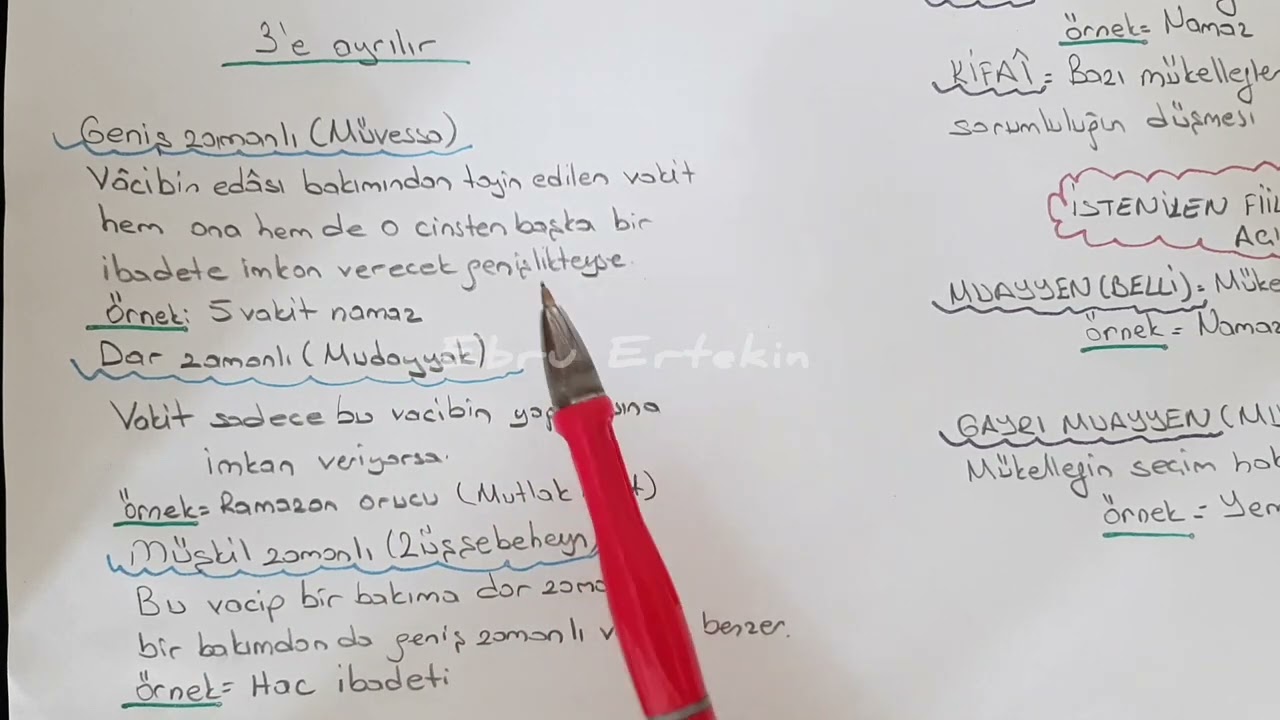 3'e ayrılır
Geniş zamanlı (Müvessa)
Vâcibin edâsı bakımından tayin edilen vakit
hem ona hem de o cinsten başka bir
ibadete imkan verecek genişlikteyse.
Örnek: 5 vakit namaz
Dar zamanlı (Mudayyak)
Vakit sadece bu vacibin
imkan veriyorsa.
Örnek= Ramazan orucu (Mutlak
Müşkil zamanlı (Züşşebeheyn)
Bu vacip bir bakıma dar
bir bakımdan da geniş zamanlı benzer.
Örnek= Hac ibadeti
Örnek= Namaz
KİFAÎ = Bazı mükellefler
sorumluluğun düşmesi
İSTENİLEN FİİL
MUAYYEN (BELLİ):
Örnek = Namaz
GAYRI MUAYYEN
Mükellefin seçim
Örnek =
Ebru Ertekin